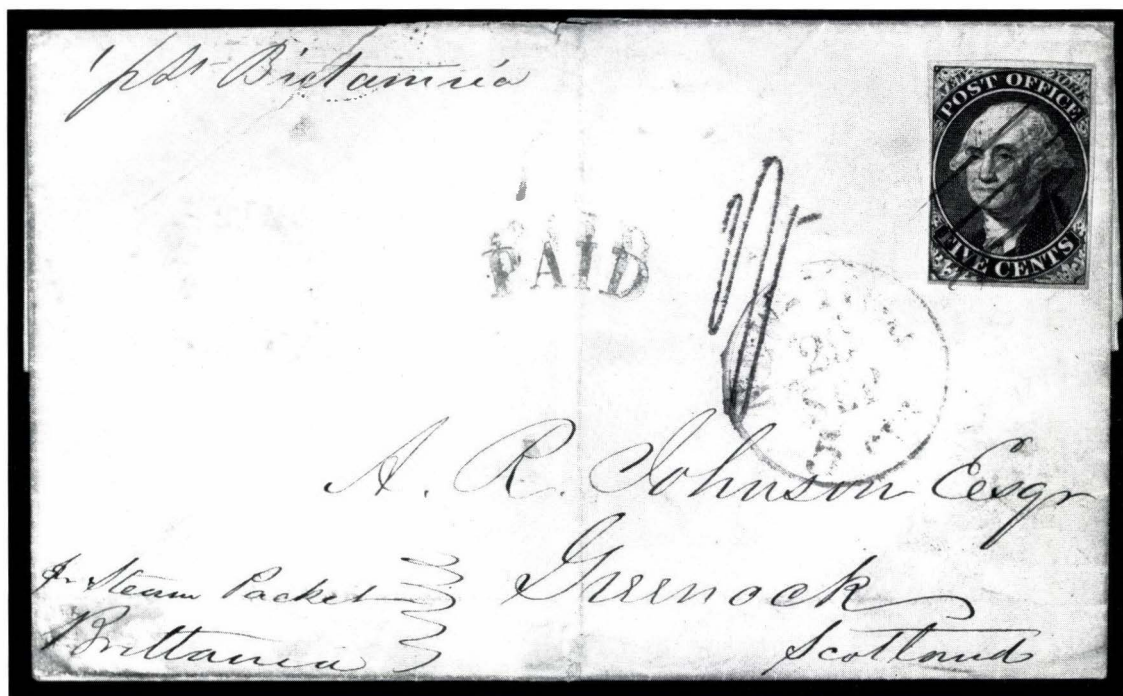 p St Britannia
NEW YORK
POST OFFICE
FIVE CENTS
PAID
NEW-YORK
SEP
5 cts
A. R. Johnson Esqr
Greenock
Scotland
pr Steam Packet
Brittania